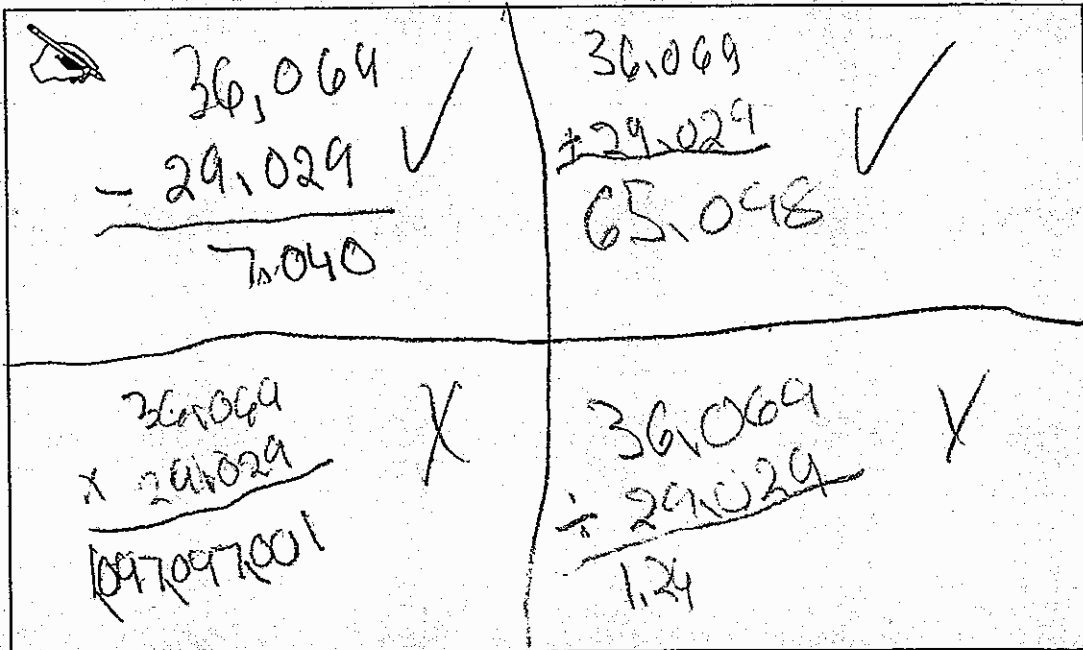 36,069
- 29,029 ✓
7,040
36,069
+ 29,029 ✓
65,098
36,069
x 29,029 X
1,047,047,001
36,069
÷ 29,029 X
1.24